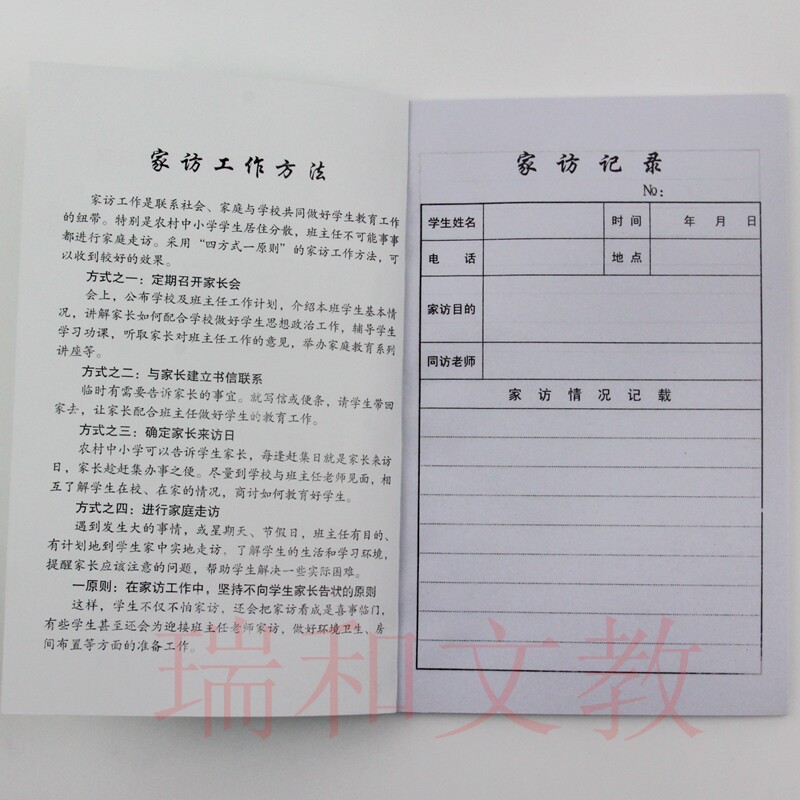 家访工作方法
家访工作是联系社会、家庭与学校共同做好学生教育工作
的纽带。特别是农村中小学学生居住分散，班主任不可能事事
都进行家庭走访。采用“四方式一原则”的家访工作方法，可
以收到较好的效果。
方式之一：定期召开家长会
会上，公布学校及班主任工作计划，介绍本班学生基本情
况，讲解家长如何配合学校做好学生思想政治工作，辅导学生
学习功课，听取家长对班主任工作的意见，举办家庭教育系列
讲座等。
方式之二：与家长建立书信联系
临时有需要告诉家长的事宜。就写信或便条，请学生带回
家去，让家长配合班主任做好学生的教育工作。
方式之三：确定家长来访日
农村中小学可以告诉学生家长，每逢赶集日就是家长来访
日，家长趁赶集办事之便。尽量到学校与班主任老师见面，相
互了解学生在校、在家的情况，商讨如何教育好学生。
方式之四：进行家庭走访
遇到发生大的事情，或星期天、节假日，班主任有目的、
有计划地到学生家中实地走访。了解学生的生活和学习环境，
提醒家长应该注意的问题，帮助学生解决一些实际困难。
一原则：在家访工作中，坚持不向学生家长告状的原则
这样，学生不仅不怕家访，还会把家访看成是喜事临门，
有些学生甚至还会为迎接班主任老师家访，做好环境卫生、房
间布置等方面的准备工作。
家访记录
No：
学生姓名 时间 年 月 日
电话 地点
家访目的
同访老师
家访情况记载
瑞和文教